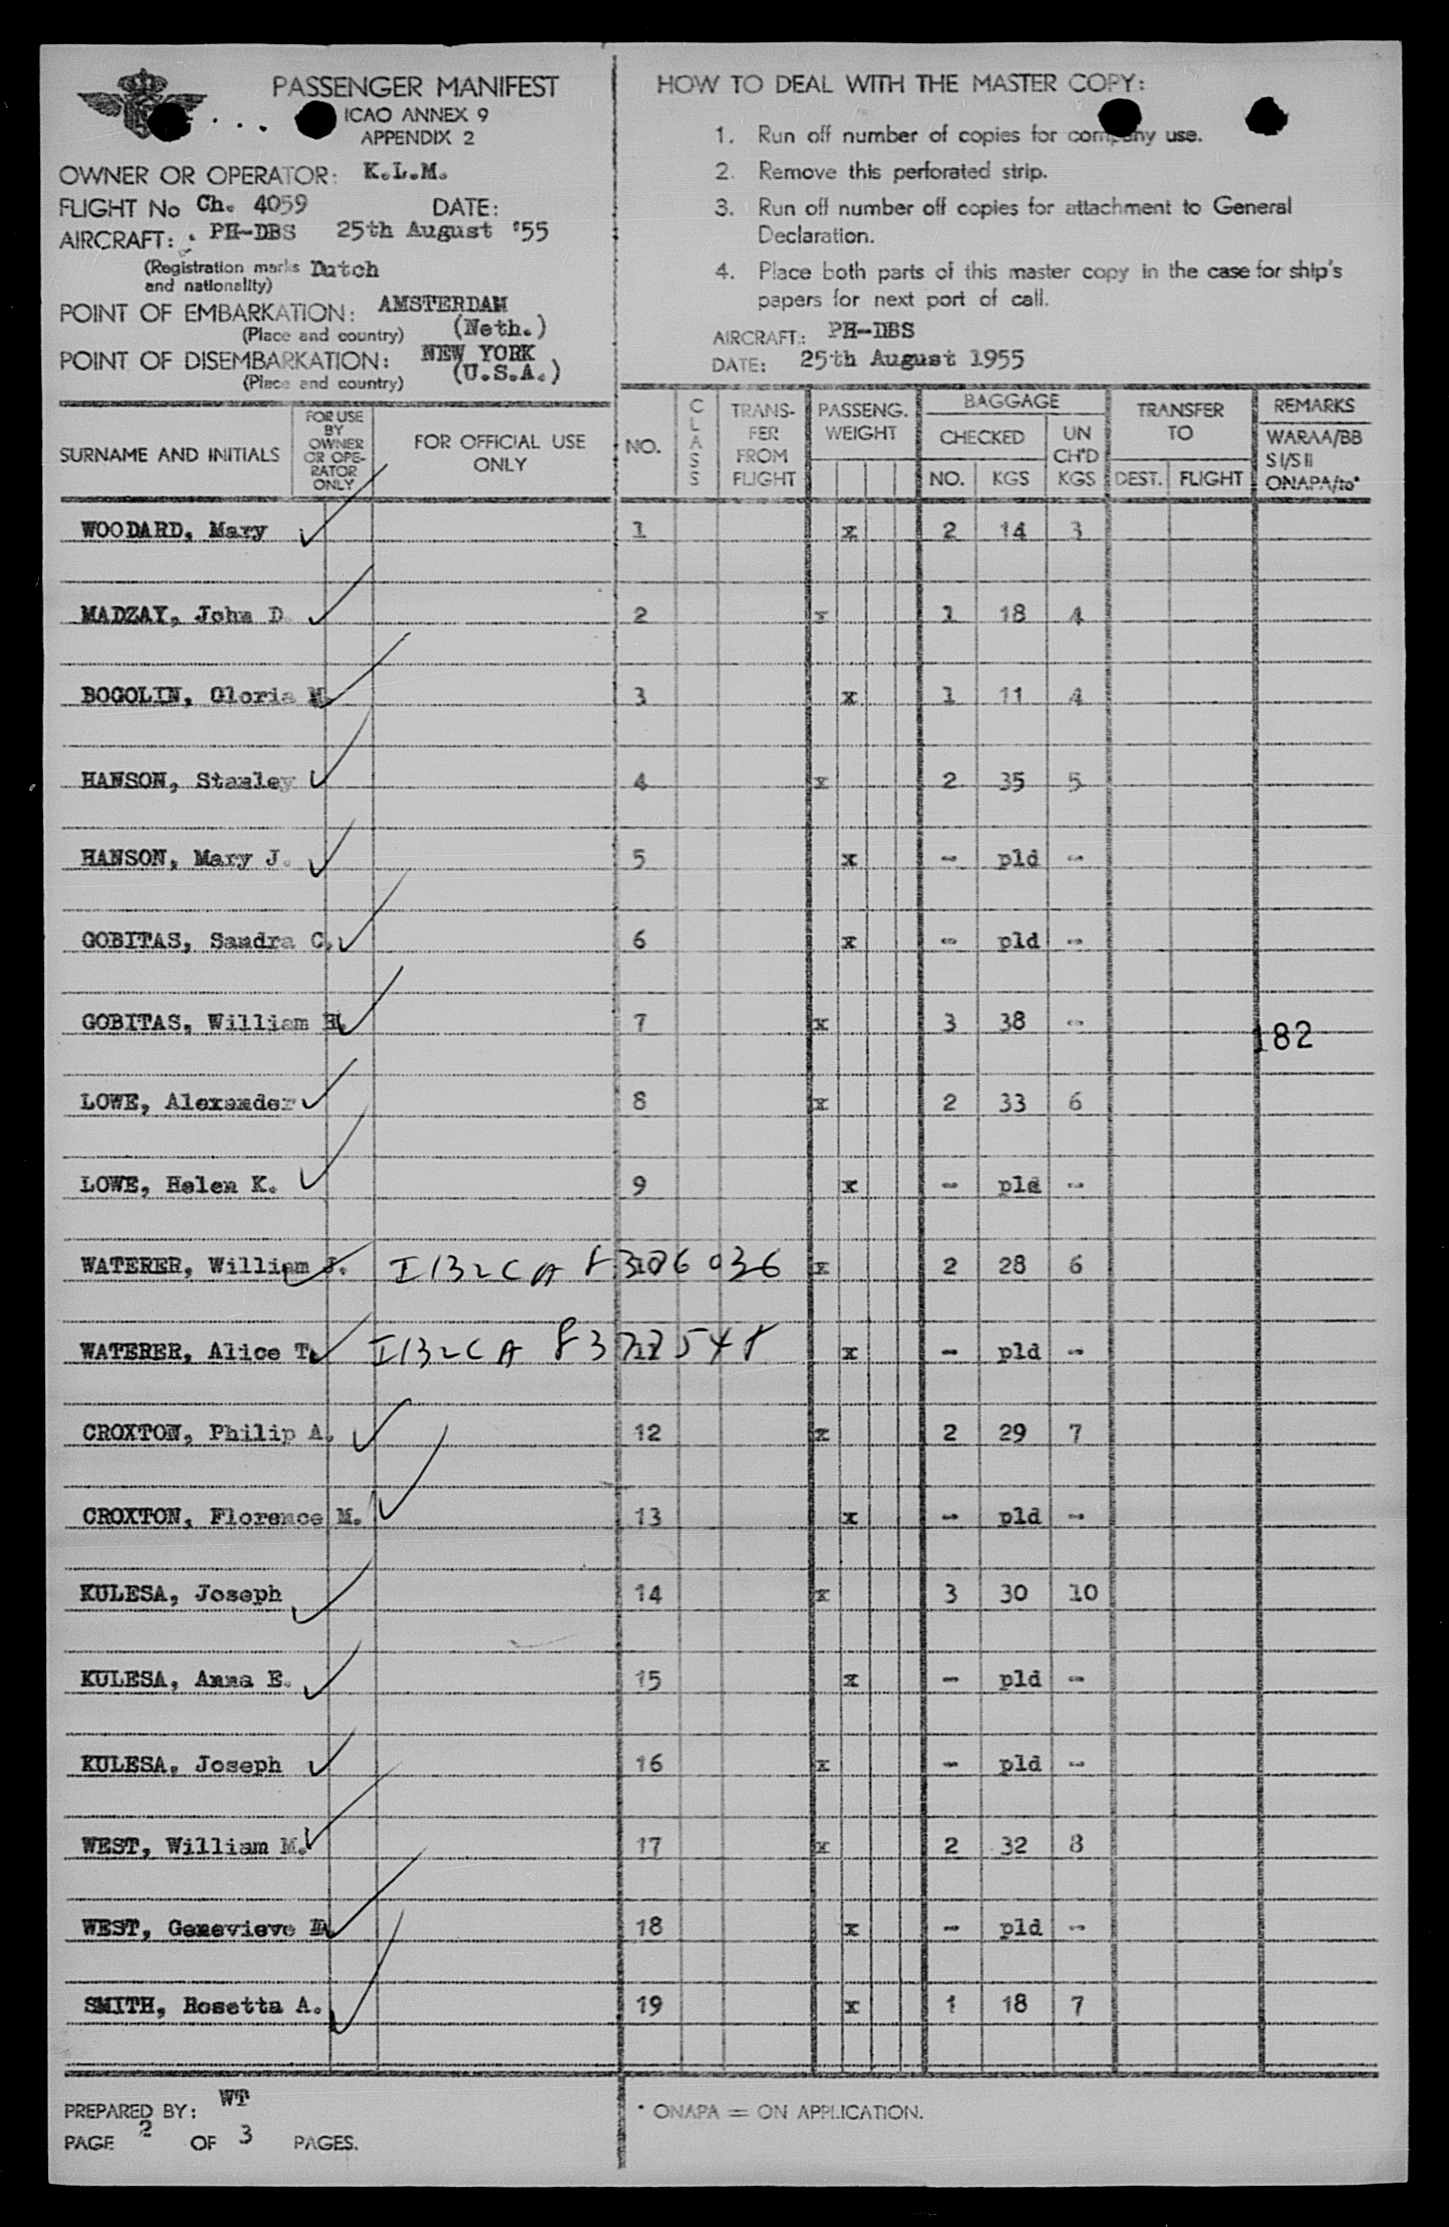 PASSENGER MANIFEST
ICAO ANNEX 9
APPENDIX 2
OWNER OR OPERATOR: K.L.M.
FLIGHT No Ch. 4059 DATE:
AIRCRAFT: PH-DBS 25th August '55
(Registration marks Dutch
and nationality)
POINT OF EMBARKATION: AMSTERDAM
(Place and country) (Neth.)
POINT OF DISEMBARKATION: NEW YORK
(Place and country) (U.S.A.)
HOW TO DEAL WITH THE MASTER COPY:
1. Run off number of copies for company use.
2. Remove this perforated strip.
3. Run off number off copies for attachment to General
Declaration.
4. Place both parts of this master copy in the case for ship's
papers for next port of call.
AIRCRAFT: PH-DBS
DATE: 25th August 1955
SURNAME AND INITIALS
FOR USE
BY
OWNER
OR OPE-
RATOR
ONLY
FOR OFFICIAL USE
ONLY
NO.
CLASS
TRANS-
FER
FROM
FLIGHT
PASSENG.
WEIGHT
BAGGAGE
CHECKED
NO. KGS
UN
CH'D
KGS
TRANSFER
TO
DEST. FLIGHT
REMARKS
WARAA/BB
SI/SII
ONAPA/to*
WOODARD, Mary 1 x 2 14 3
MADZAY, John D. 2 x 1 18 4
BOGOLIN, Gloria M. 3 x 1 11 4
HANSON, Stanley 4 x 2 35 5
HANSON, Mary J. 5 x - pld -
GOBITAS, Sandra C. 6 x - pld -
GOBITAS, William H. 7 x 3 38 -
182
LOWE, Alexander 8 x 2 33 6
LOWE, Helen K. 9 x - pld -
WATERER, William J. I132CA 8306036 x 2 28 6
WATERER, Alice T. I132CA x - pld -
CROXTON, Philip A. 12 x 2 29 7
CROXTON, Florence M. 13 x - pld -
KULESA, Joseph 14 x 3 30 10
KULESA, Anna E. 15 x - pld -
KULESA, Joseph 16 x - pld -
WEST, William M. 17 x 2 32 8
WEST, Genevieve 18 x - pld -
SMITH, Rosetta A. 19 x 1 18 7
PREPARED BY: WT
PAGE 2 OF 3 PAGES.
* ONAPA = ON APPLICATION.